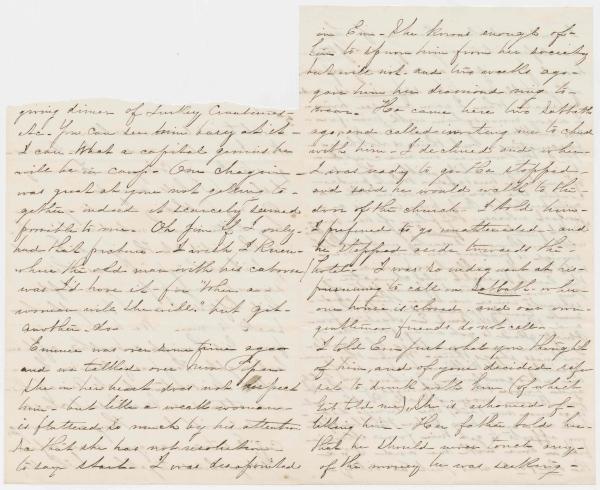 giving dinner of Turkey Cranberries
&c. You can see him busy at it -
I can. What a capital genius he
will be in camp. Our chagrin
was great at your not getting to-
gether - indeed it scarcely seemed
possible to me. Oh Jim if I only
had that picture - I wish I knew
where the old man with his caboose
was I'd have it - for "When a
woman will she will." but get
another. do
Emmie was over some time again
and we talked over
She in her heart does not respect
him - but like a weak woman
is flattered so much by his attention
that she has not resolution
to say start. I was disappointed
in Em - She knows enough of
him to spurn him from her society
but will not - and two weeks ago
gave him her diamond ring to
wear. He came here two Sabbaths
ago and called inviting me to church
with him - I declined and when
I was ready to go He stopped
and said he would walk to the
door of the church - I told him
I prefered to go unattended - and
he stepped aside towards the
hotel - I was so indignant at his
presuming to call on Sabbath when
our house is closed, and our own
gentlemen friends do not call -
I told Em just what you thought
of him, and of your decided refu
sal to drink with him (of which
told me), She is ashamed of
telling him - Her father told her
that he should never touch any
of the money he was seeking -